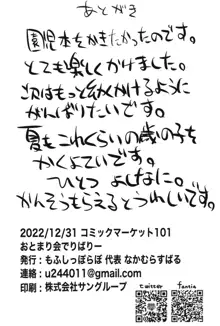 あとがき
園児本をかきたかったのです。
とても楽しくかけました。
次はもっと幼くかけるように
がんばりたいです。
夏もこれくらいの歳の子を
かくよていです。
ひとつ よしなに。
かんそうもらえるとうれしいです。
2022/12/31 コミックマーケット101
おとまり会でりばりー
発行:もふしっぽらぼ 代表 なかむらすばる
連絡:u244011@gmail.com
印刷:株式会社サングループ
twitter
fantia